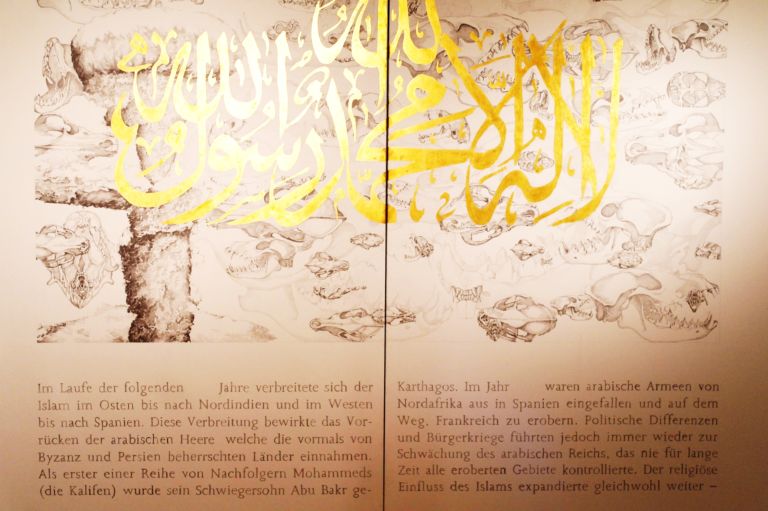 لا إله إلا الله محمد رسول الله
Im Laufe der folgenden Jahre verbreitete sich der
Islam im Osten bis nach Nordindien und im Westen
bis nach Spanien. Diese Verbreitung bewirkte das Vor-
rücken der arabischen Heere welche die vormals von
Byzanz und Persien beherrschten Länder einnahmen.
Als erster einer Reihe von Nachfolgern Mohammeds
(die Kalifen) wurde sein Schwiegersohn Abu Bakr ge-
Karthagos. Im Jahr waren arabische Armeen von
Nordafrika aus in Spanien eingefallen und auf dem
Weg, Frankreich zu erobern. Politische Differenzen
und Bürgerkriege führten jedoch immer wieder zur
Schwächung des arabischen Reichs, das nie für lange
Zeit alle eroberten Gebiete kontrollierte. Der religiöse
Einfluss des Islams expandierte gleichwohl weiter –